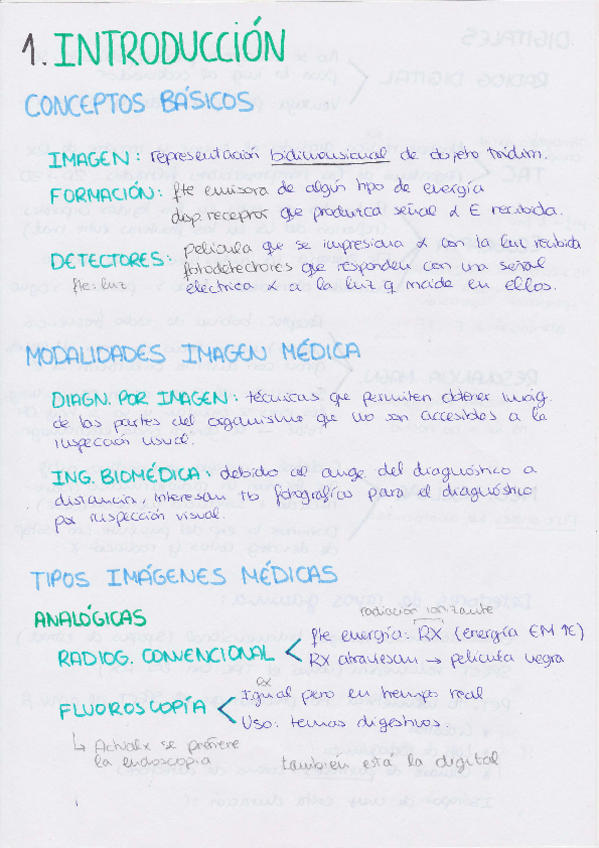 1. INTRODUCCIÓN
CONCEPTOS BÁSICOS
IMAGEN: representación bidimensional de objeto tridim.
FORMACIÓN: fte emisora de algún tipo de energía
disp. receptor que produzca señal α E recibida.
DETECTORES: película que se impresiona α con la luz recibida
fte: luz fotodetectores que responden con una señal
eléctrica α a la luz q incide en ellos.
MODALIDADES IMAGEN MÉDICA
DIAGN. POR IMAGEN: técnicas que permiten obtener imag.
de las partes del organismo que no son accesibles a la
inspección visual.
ING. BIOMÉDICA: debido al auge del diagnóstico a
distancia, interesan tb fotografías para el diagnóstico
por inspección visual.
TIPOS IMÁGENES MÉDICAS
ANALÓGICAS
radiación ionizante
RADIOG. CONVENCIONAL < fte energía: RX (energía EM ↑E)
RX atraviesan → película negra
FLUOROSCOPÍA < Igual pero en tiempo real
RX
Uso: temas digestivos.
↳ Actual
se prefiere
la endoscopia
también está la digital